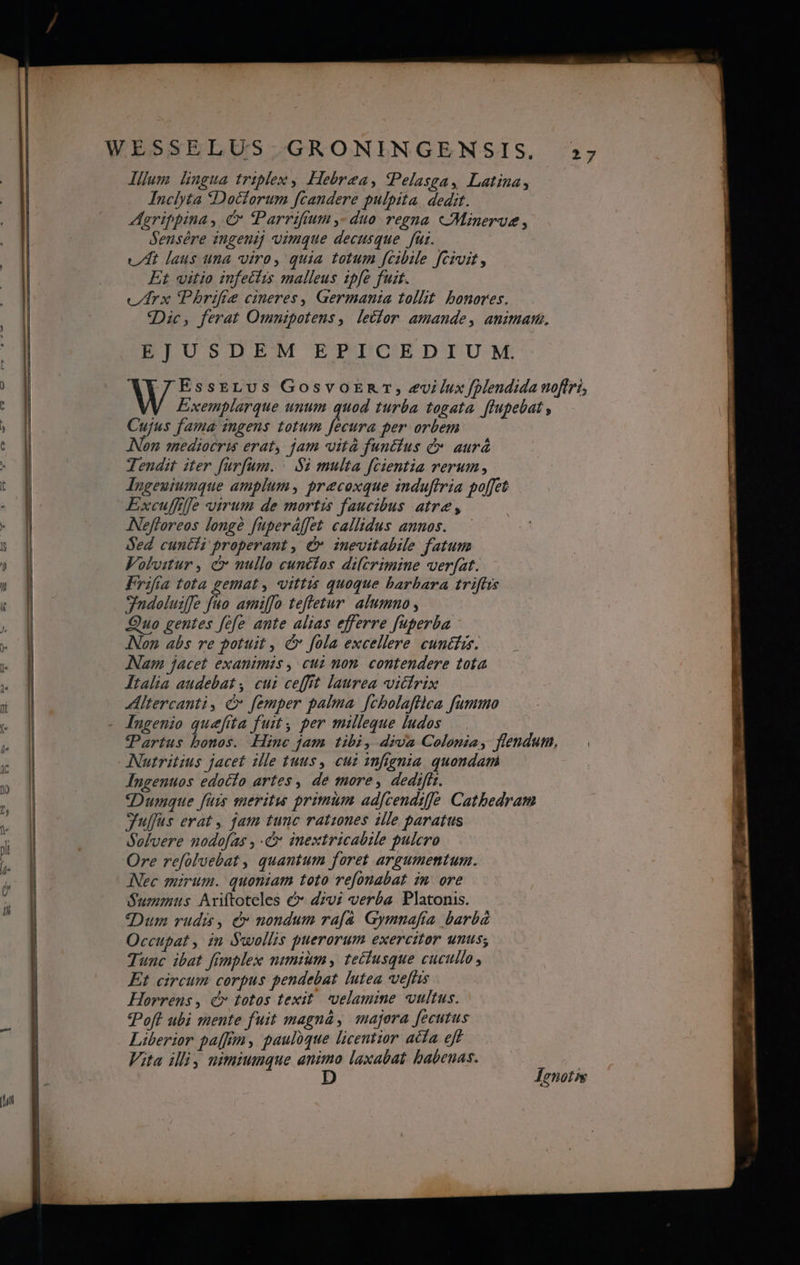 WESSELUS GRONINGENSIS. 27
Illum lingua triplex, Hebrea, Pelasga, Latina,
Inclyta Doctorum ſcandere pulpita dedit.
Agrippina, & Parriſium, duo regna Minervæ,
Senſère ingenij vimque decusque ſui.
At laus una viro, quia totum ſcibile ſcivit,
Et vitio infectis malleus ipſe fuit.
Arx Phriſiæ cineres, Germania tollit honores.
Dic, ferat Omnipotens, lector amande, animam.
EJUSDEM EPICEDIUM.
WEssELUS GosvoERT, ævi lux ſplendida noſtri,
Exemplarque unum quod turba togata ſtupebat,
Cujus fama ingens totum ſecura per orbem
Non mediocris erat, jam vità functus & aurà
Tendit iter ſurſum. Si multa ſcientia rerum,
Ingeniumque amplum, præcoxque induſtria poſſet
Excuſſiſſe virum de mortis faucibus atræ,
Neſtoreos longè ſuperâſſet callidus annos.
Sed cuncti properant, & inevitabile fatum
Volvitur, & nullo cunctos diſcrimine verſat.
Friſia tota gemat, vittis quoque barbara triſtis
Indoluiſſe ſuo amiſſo teſtetur alumno,
Quo gentes ſeſe ante alias efferre ſuperba
Non abs re potuit, & ſola excellere cunctis.
Nam jacet exanimis, cui non contendere tota
Italia audebat, cui ceſſit laurea victrix
Altercanti, & ſemper palma ſcholaſtica ſummo
Ingenio quæſita fuit, per milleque ludos
Partus honos. Hinc jam tibi, diva Colonia, flendum,
Nutritius jacet ille tuus, cui inſignia quondam
Ingenuos edocto artes, de more, dediſti.
Dumque ſuis meritis primùm adſcendiſſe Cathedram
Juſſus erat, jam tunc rationes ille paratus
Solvere nodoſas, & inextricabile pulcro
Ore reſolvebat, quantum foret argumentum.
Nec mirum. quoniam toto reſonabat in ore
Summus Ariſtoteles & divi verba Platonis.
Dum rudis, & nondum raſâ Gymnaſia barbâ
Occupat, in Swollis puerorum exercitor unus,
Tunc ibat ſimplex nimiùm, tectusque cucullo,
Et circum corpus pendebat lutea veſtis
Horrens, & totos texit velamine vultus.
Poſt ubi mente fuit magnâ, majora ſecutus
Liberior paſſim, paulòque licentior acta eſt
Vita illi, nimiumque animo laxabat habenas.
D Ignotis